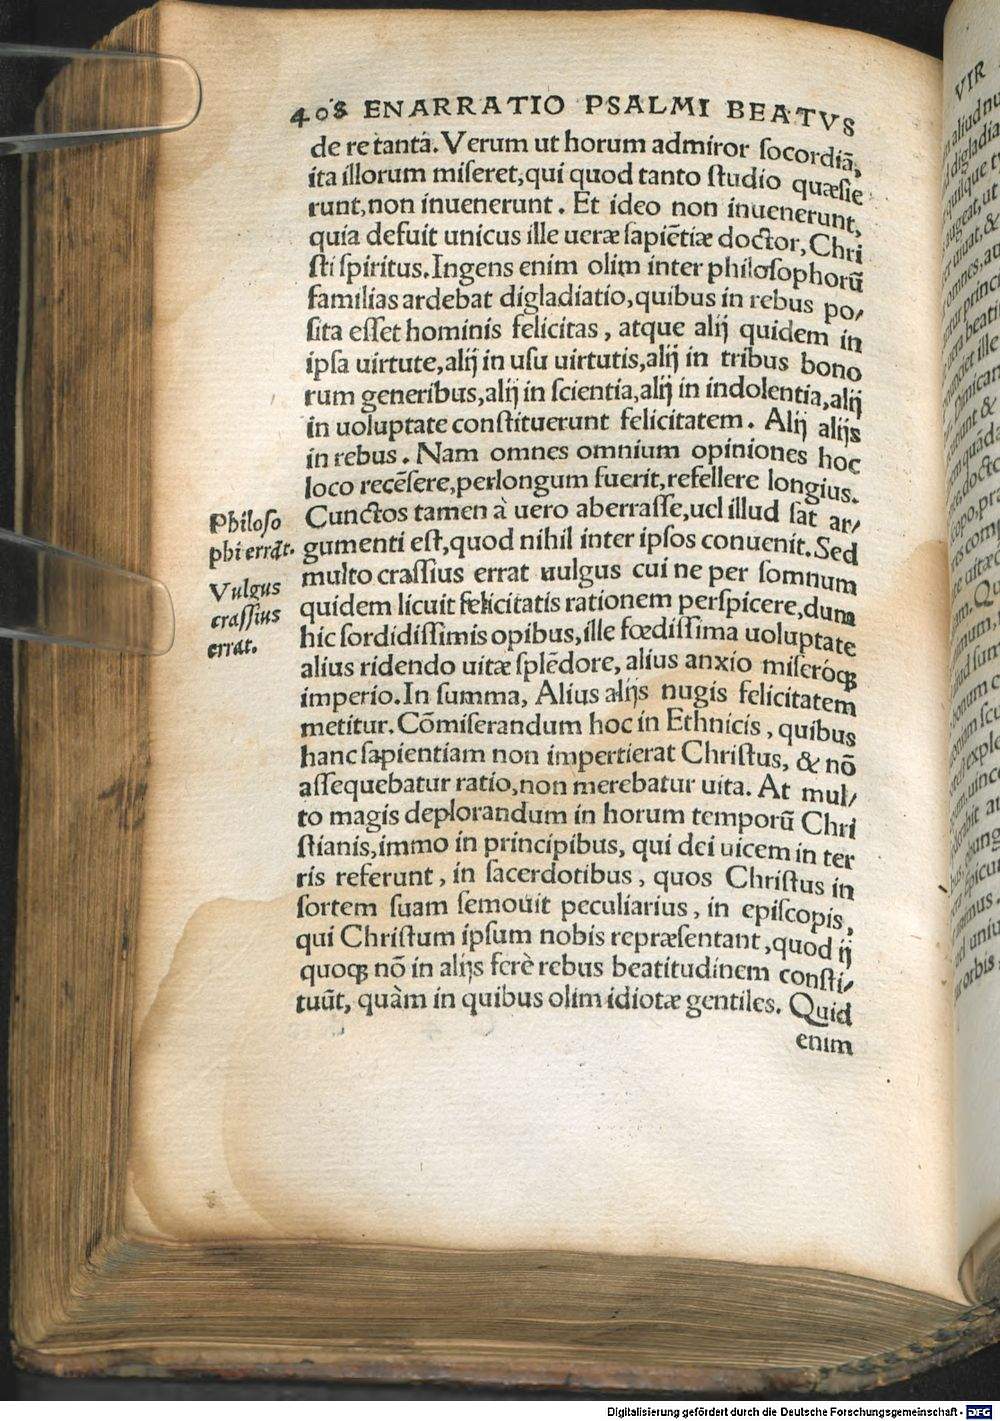 408 ENARRATIO PSALMI BEATVS
de re tantā. Verum ut horum admiror socordiā,
ita illorum miseret, qui quod tanto studio quæsie
runt, non inuenerunt. Et ideo non inuenerunt,
quia defuit unicus ille ueræ sapiētiæ doctor, Chri
sti spiritus. Ingens enim olim inter philosophorū
familias ardebat digladiatio, quibus in rebus po/
sita esset hominis felicitas, atque alij quidem in
ipsa uirtute, alij in usu uirtutis, alij in tribus bono
rum generibus, alij in scientia, alij in indolentia, alij
in uoluptate constituerunt felicitatem. Alij alijs
in rebus. Nam omnes omnium opiniones hoc
loco recēsere, perlongum fuerit, refellere longius.
Cunctos tamen à uero aberrasse, uel illud sat ar/
gumenti est, quod nihil inter ipsos conuenit. Sed
multo crassius errat uulgus cui ne per somnum
quidem licuit felicitatis rationem perspicere, dum
hic sordidissimis opibus, ille fœdissima uoluptate
alius ridendo uitæ splēdore, alius anxio miseróq;
imperio. In summa, Alius alijs nugis felicitatem
metitur. Cōmiserandum hoc in Ethnicis, quibus
hanc sapientiam non impertierat Christus, & nō
assequebatur ratio, non merebatur uita. At mul/
to magis deplorandum in horum temporū Chri
stianis, immo in principibus, qui dei uicem in ter
ris referunt, in sacerdotibus, quos Christus in
sortem suam semouit peculiarius, in episcopis,
qui Christum ipsum nobis repræsentant, quod ij
quoq; nō in alijs ferè rebus beatitudinem consti/
tuūt, quàm in quibus olim idiotæ gentiles. Quid
enim
Philoso
phi errāt.
Vulgus
crassius
errat.
VIR
Digitalisierung gefördert durch die Deutsche Forschungsgemeinschaft - DFG